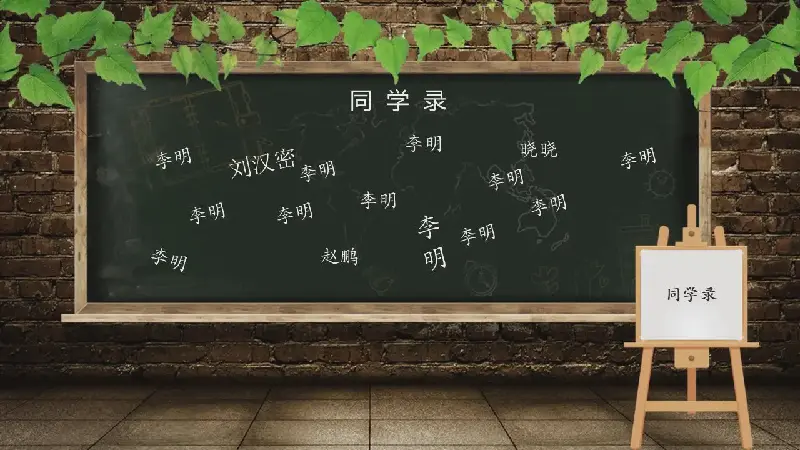 同学录
李明
刘汉密
李明
李明
晓晓
李明
李明
李明
李明
李明
李明
李明
李明
李明
赵鹏
同学录